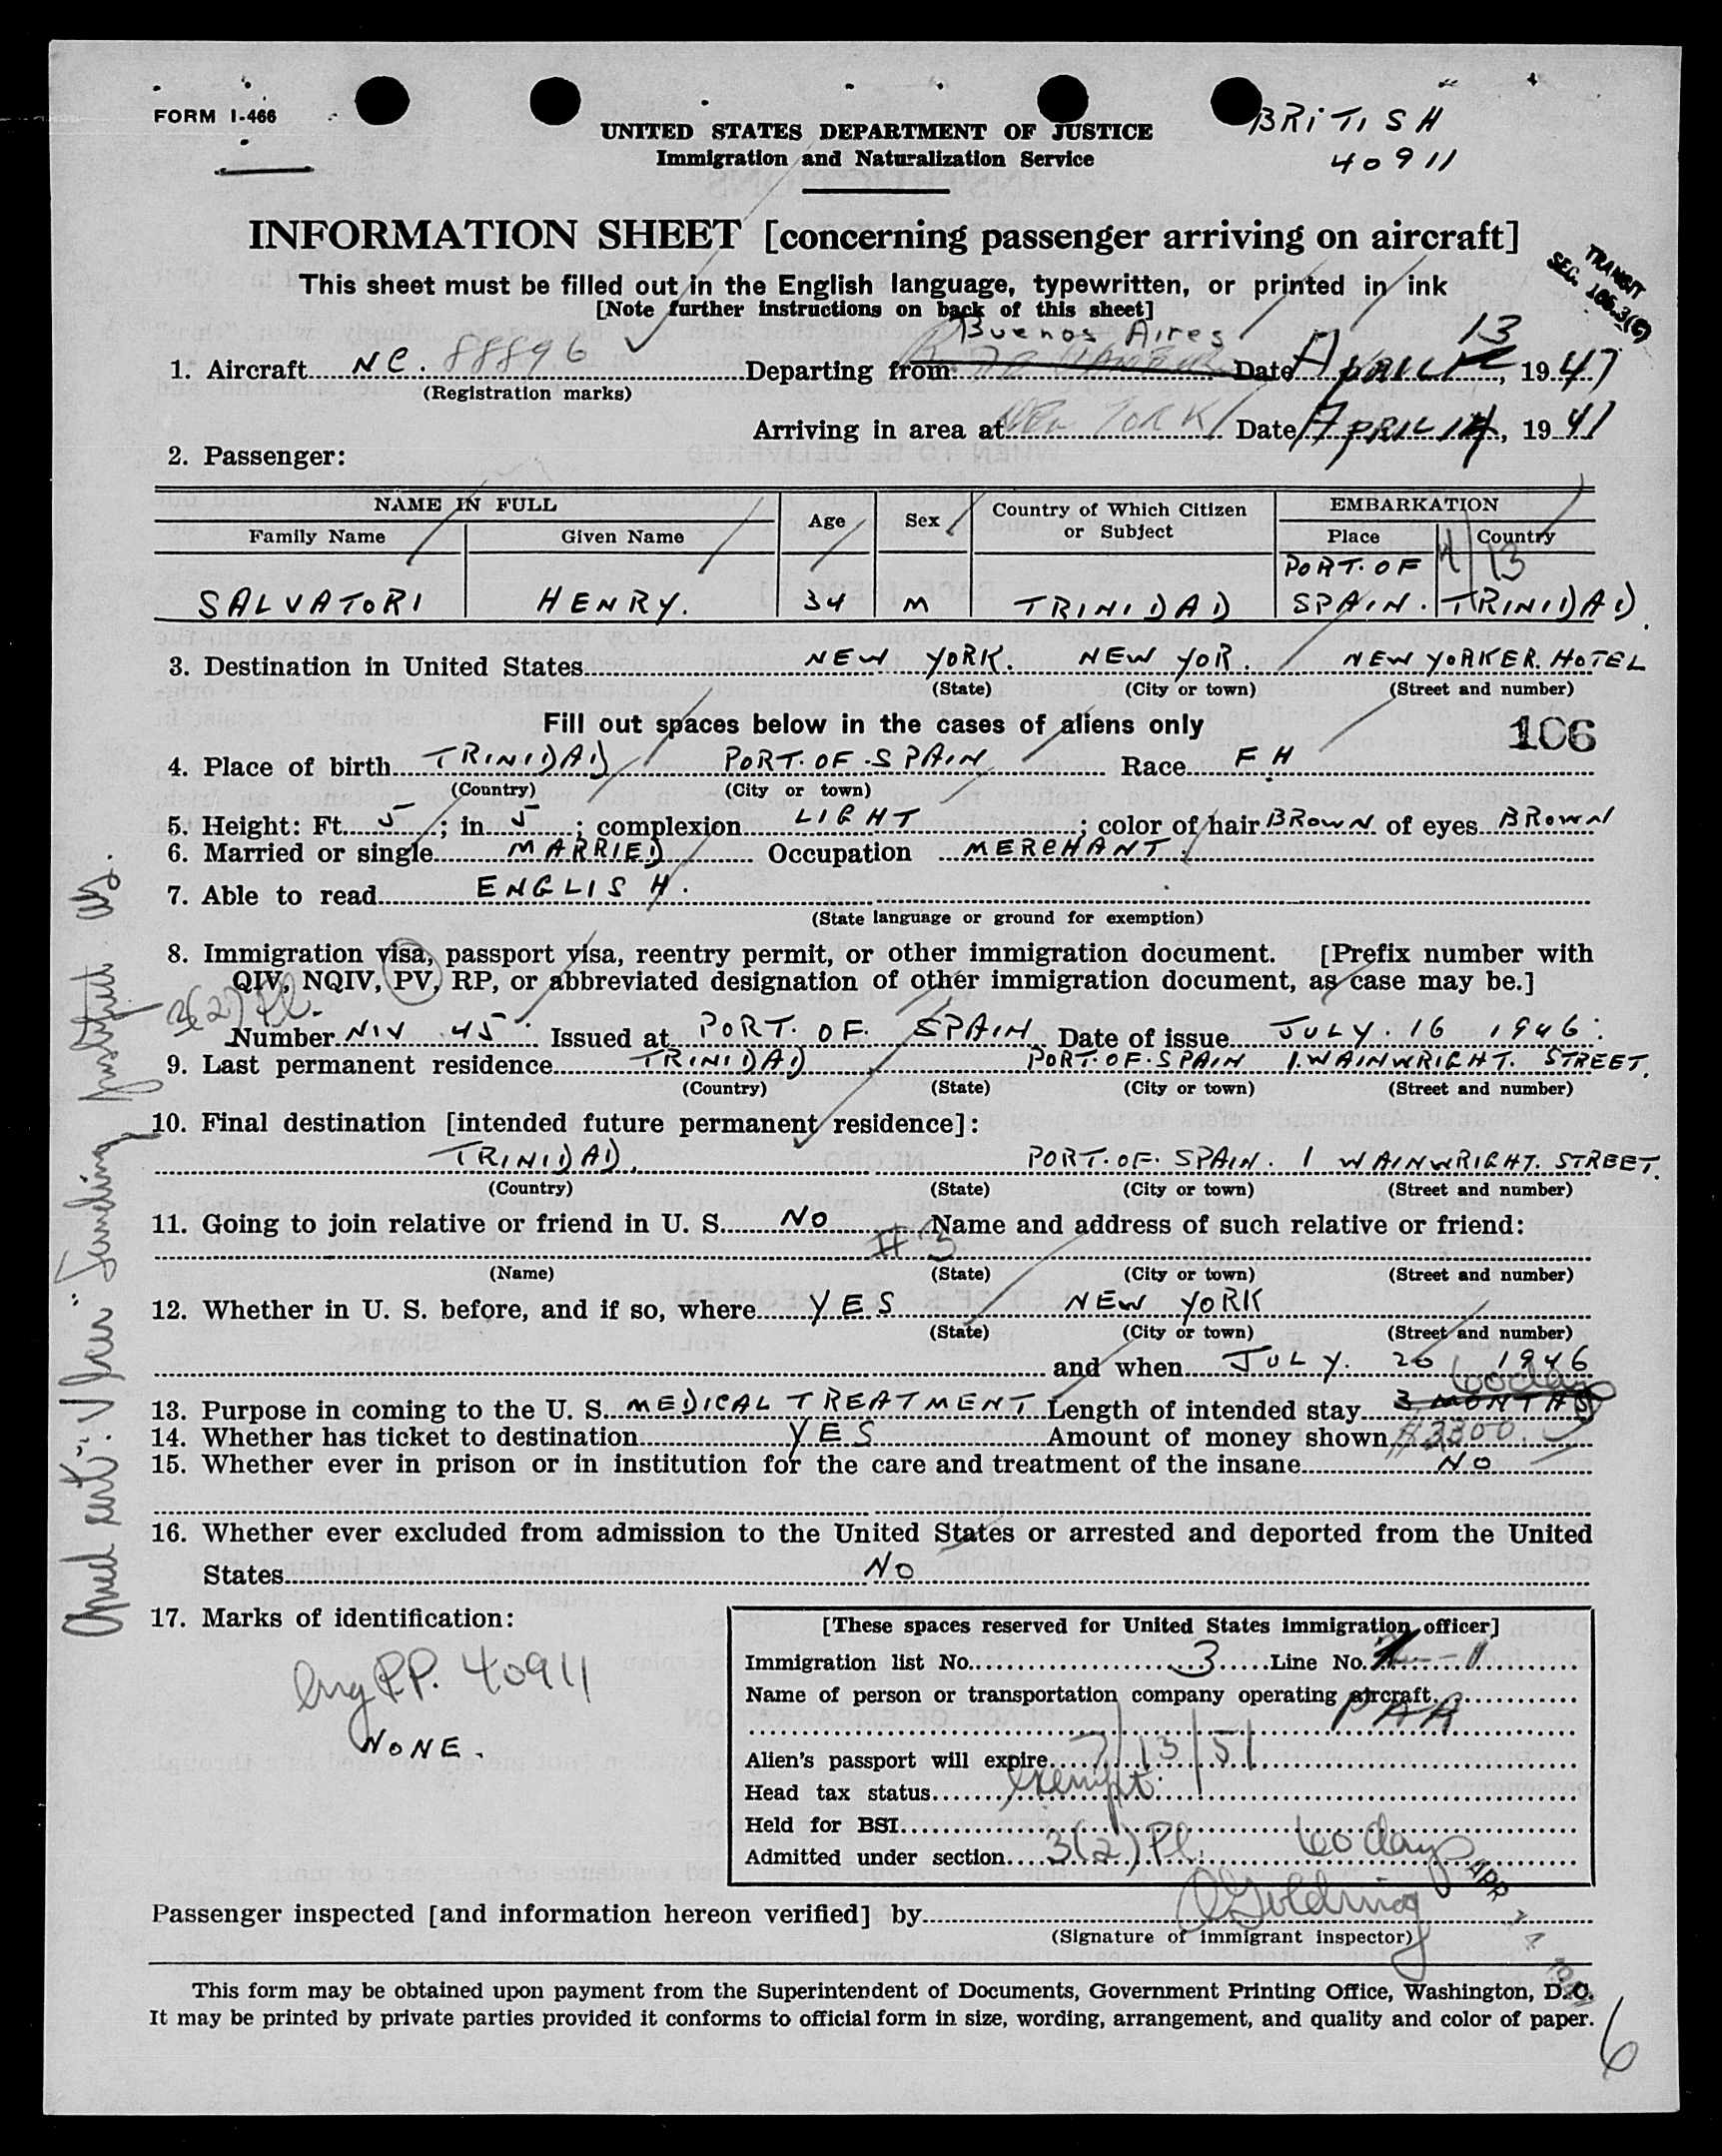 FORM I-466
UNITED STATES DEPARTMENT OF JUSTICE
Immigration and Naturalization Service
BRITISH
40911
INFORMATION SHEET [concerning passenger arriving on aircraft]
TRANSIT
SEC. 106.3(G)
This sheet must be filled out in the English language, typewritten, or printed in ink
[Note further instructions on back of this sheet]
Buenos Aires
1. Aircraft NC. 88896 Departing from Date APRIL 13, 1947
(Registration marks)
Arriving in area at NEW YORK Date APRIL 14, 1947
2. Passenger:
NAME IN FULL Age Sex Country of Which Citizen or Subject EMBARKATION
Family Name Given Name Place Country
PORT. OF 4 13
SALVATORI HENRY. 34 M TRINIDAD SPAIN. TRINIDAD.
3. Destination in United States NEW YORK. NEW YOR. NEW YORKER. HOTEL
(State) (City or town) (Street and number)
Fill out spaces below in the cases of aliens only
106
4. Place of birth TRINIDAD PORT. OF. SPAIN Race F H
(Country) (City or town)
5. Height: Ft. 5; in. 5; complexion LIGHT; color of hair BROWN of eyes BROWN
6. Married or single MARRIED Occupation MERCHANT.
7. Able to read ENGLISH.
(State language or ground for exemption)
8. Immigration visa, passport visa, reentry permit, or other immigration document. [Prefix number with
QIV, NQIV, PV, RP, or abbreviated designation of other immigration document, as case may be.]
3(2) Pl.
Number NIV 45 Issued at PORT. OF. SPAIN Date of issue JULY. 16 1946.
9. Last permanent residence TRINIDAD PORT. OF. SPAIN 1. WAINWRIGHT. STREET.
(Country) (State) (City or town) (Street and number)
10. Final destination [intended future permanent residence]:
TRINIDAD. PORT. OF. SPAIN. 1 WAINWRIGHT. STREET.
(Country) (State) (City or town) (Street and number)
11. Going to join relative or friend in U. S. NO Name and address of such relative or friend:
#3
(Name) (State) (City or town) (Street and number)
12. Whether in U. S. before, and if so, where YES NEW YORK
(State) (City or town) (Street and number)
and when JULY. 20 1946
60 days
13. Purpose in coming to the U. S. MEDICAL TREATMENT Length of intended stay 3 MONTHS
14. Whether has ticket to destination YES Amount of money shown $3300.
15. Whether ever in prison or in institution for the care and treatment of the insane NO
16. Whether ever excluded from admission to the United States or arrested and deported from the United
States NO
17. Marks of identification:
P.P. 40911
NONE.
[These spaces reserved for United States immigration officer]
Immigration list No. 3 Line No. 1
Name of person or transportation company operating aircraft
PAA
Alien's passport will expire 7/13/51
Head tax status exempt.
Held for BSI
Admitted under section 3(2) Pl. 60 days
Passenger inspected [and information hereon verified] by Goldring
APR 14
(Signature of immigrant inspector)
This form may be obtained upon payment from the Superintendent of Documents, Government Printing Office, Washington, D.C.
It may be printed by private parties provided it conforms to official form in size, wording, arrangement, and quality and color of paper.
6